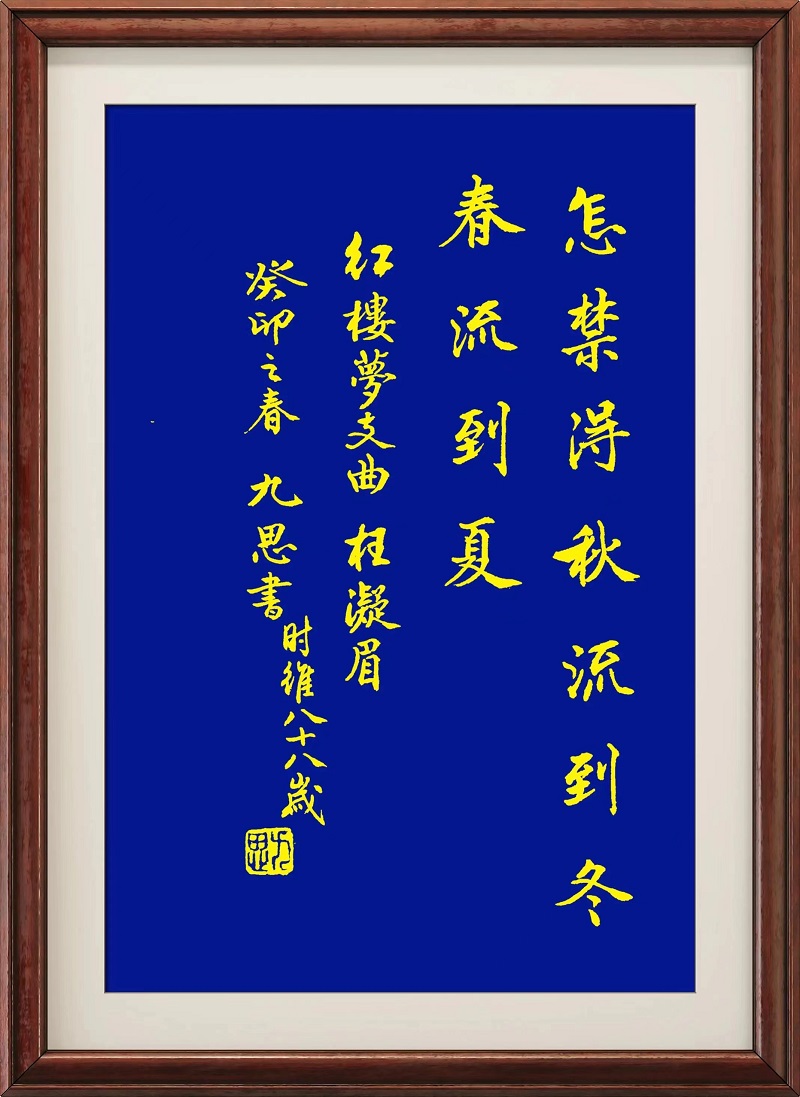 怎禁得秋流到冬
春流到夏
红樓夢支曲 枉凝眉
癸卯之春 九思書
时維八十八歲
九思